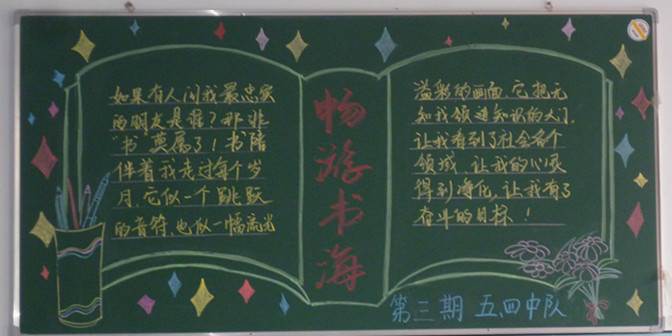 如果有人问我最忠实
的朋友是谁？那非
“书”莫属了！书陪
伴着我走过每个岁
月，它似一个跳跃
的音符，也似一幅流光
畅游书海
溢彩的画面，它把无
知我领进知识的大门，
让我看到了社会各个
领域，让我的心灵
得到净化，让我有了
奋斗的目标！
第三期 五、四中队